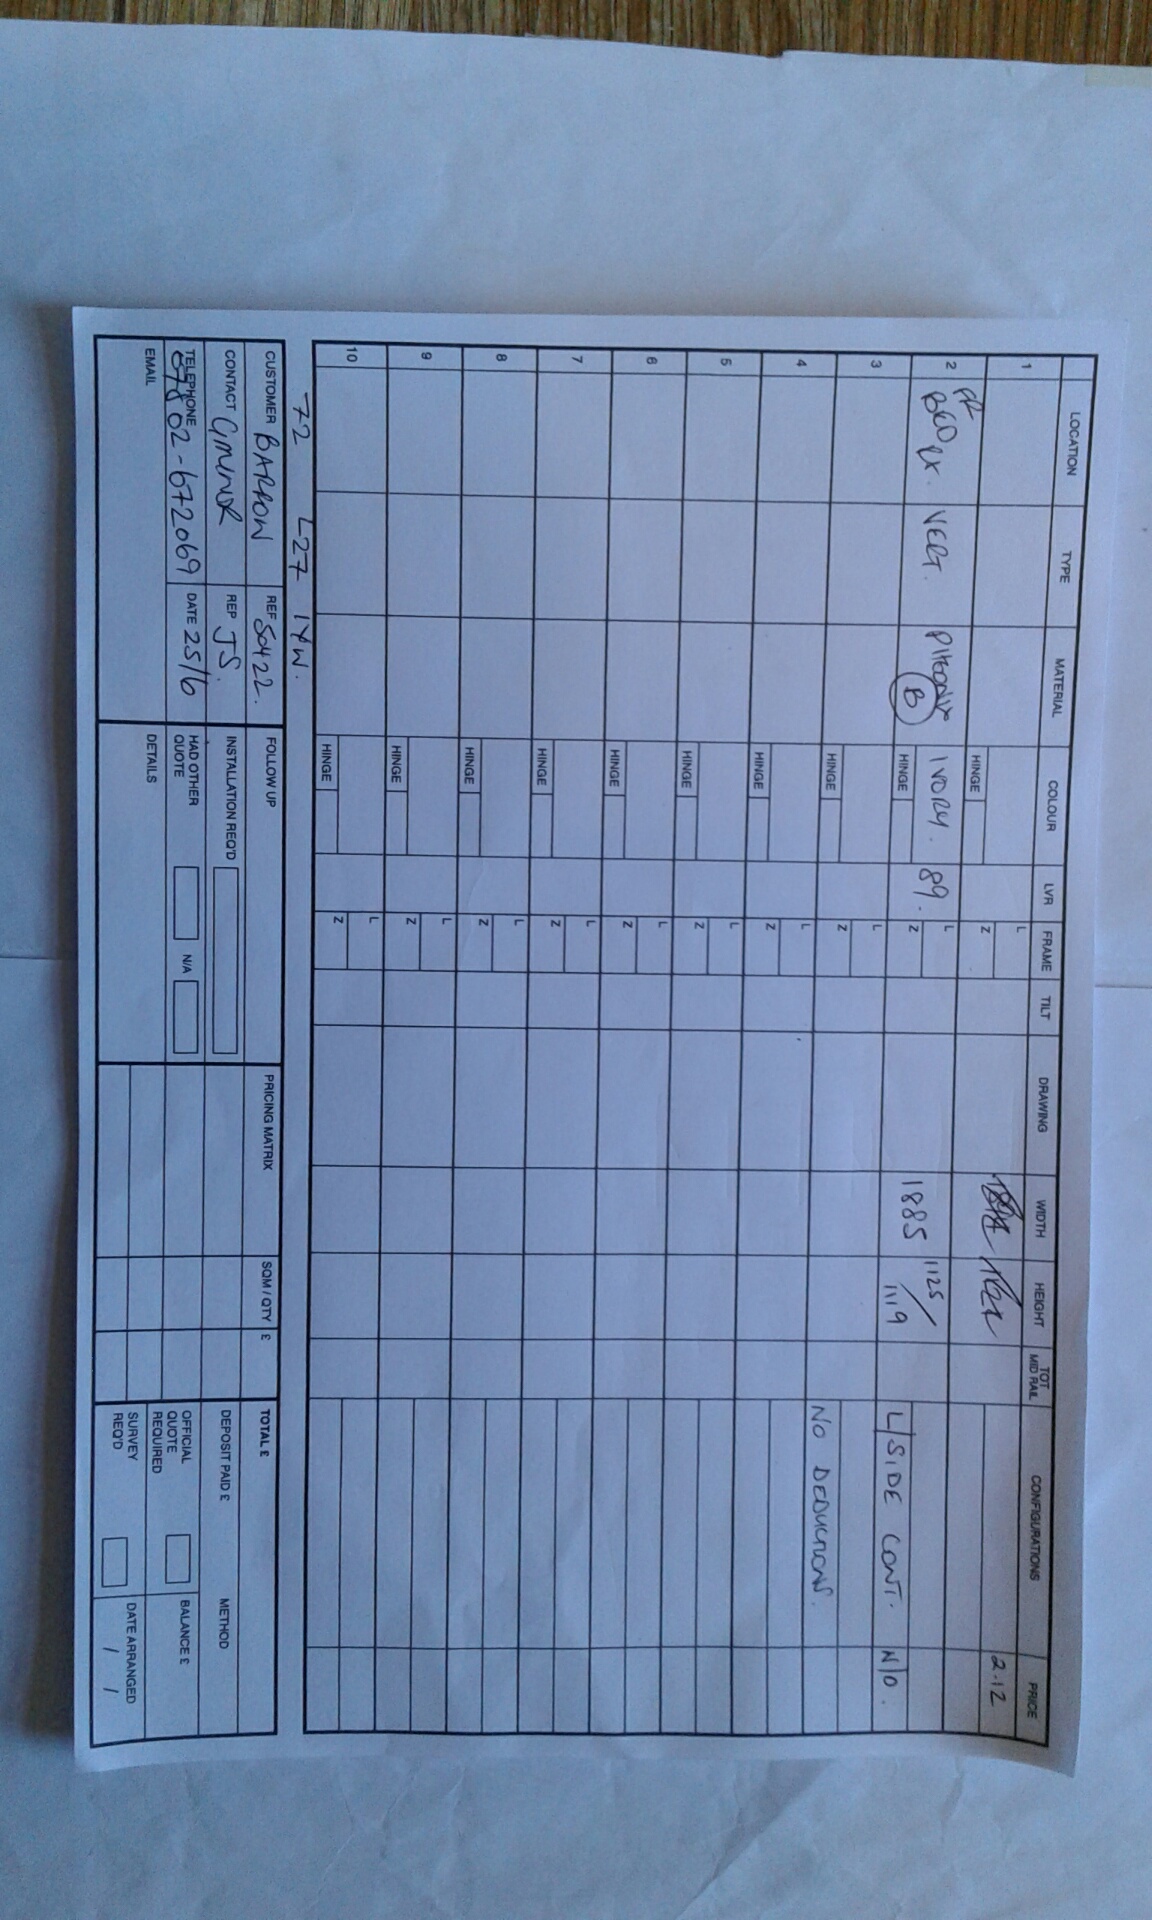 LOCATION TYPE MATERIAL COLOUR LVR FRAME TILT DRAWING WIDTH HEIGHT TOT MID RAIL CONFIGURATIONS PRICE
1 L 2.12
HINGE Z
FR
2 BED VERT. B IVORY. 89. L 1125/
HINGE Z 1885 1119 L/SIDE CONT. N/D.
3 L
HINGE Z NO DEDUCTIONS.
4 L
HINGE Z
5 L
HINGE Z
6 L
HINGE Z
7 L
HINGE Z
8 L
HINGE Z
9 L
HINGE Z
10 L
HINGE Z
72 L27 1YW.
CUSTOMER BARROW REF 50422. FOLLOW UP PRICING MATRIX SQM / QTY £ TOTAL £
CONTACT REP JS. INSTALLATION REQ'D DEPOSIT PAID £ METHOD
TELEPHONE 07802-672069 DATE 25/6 HAD OTHER QUOTE N/A OFFICIAL QUOTE REQUIRED BALANCE £
EMAIL DETAILS SURVEY REQ'D DATE ARRANGED / /